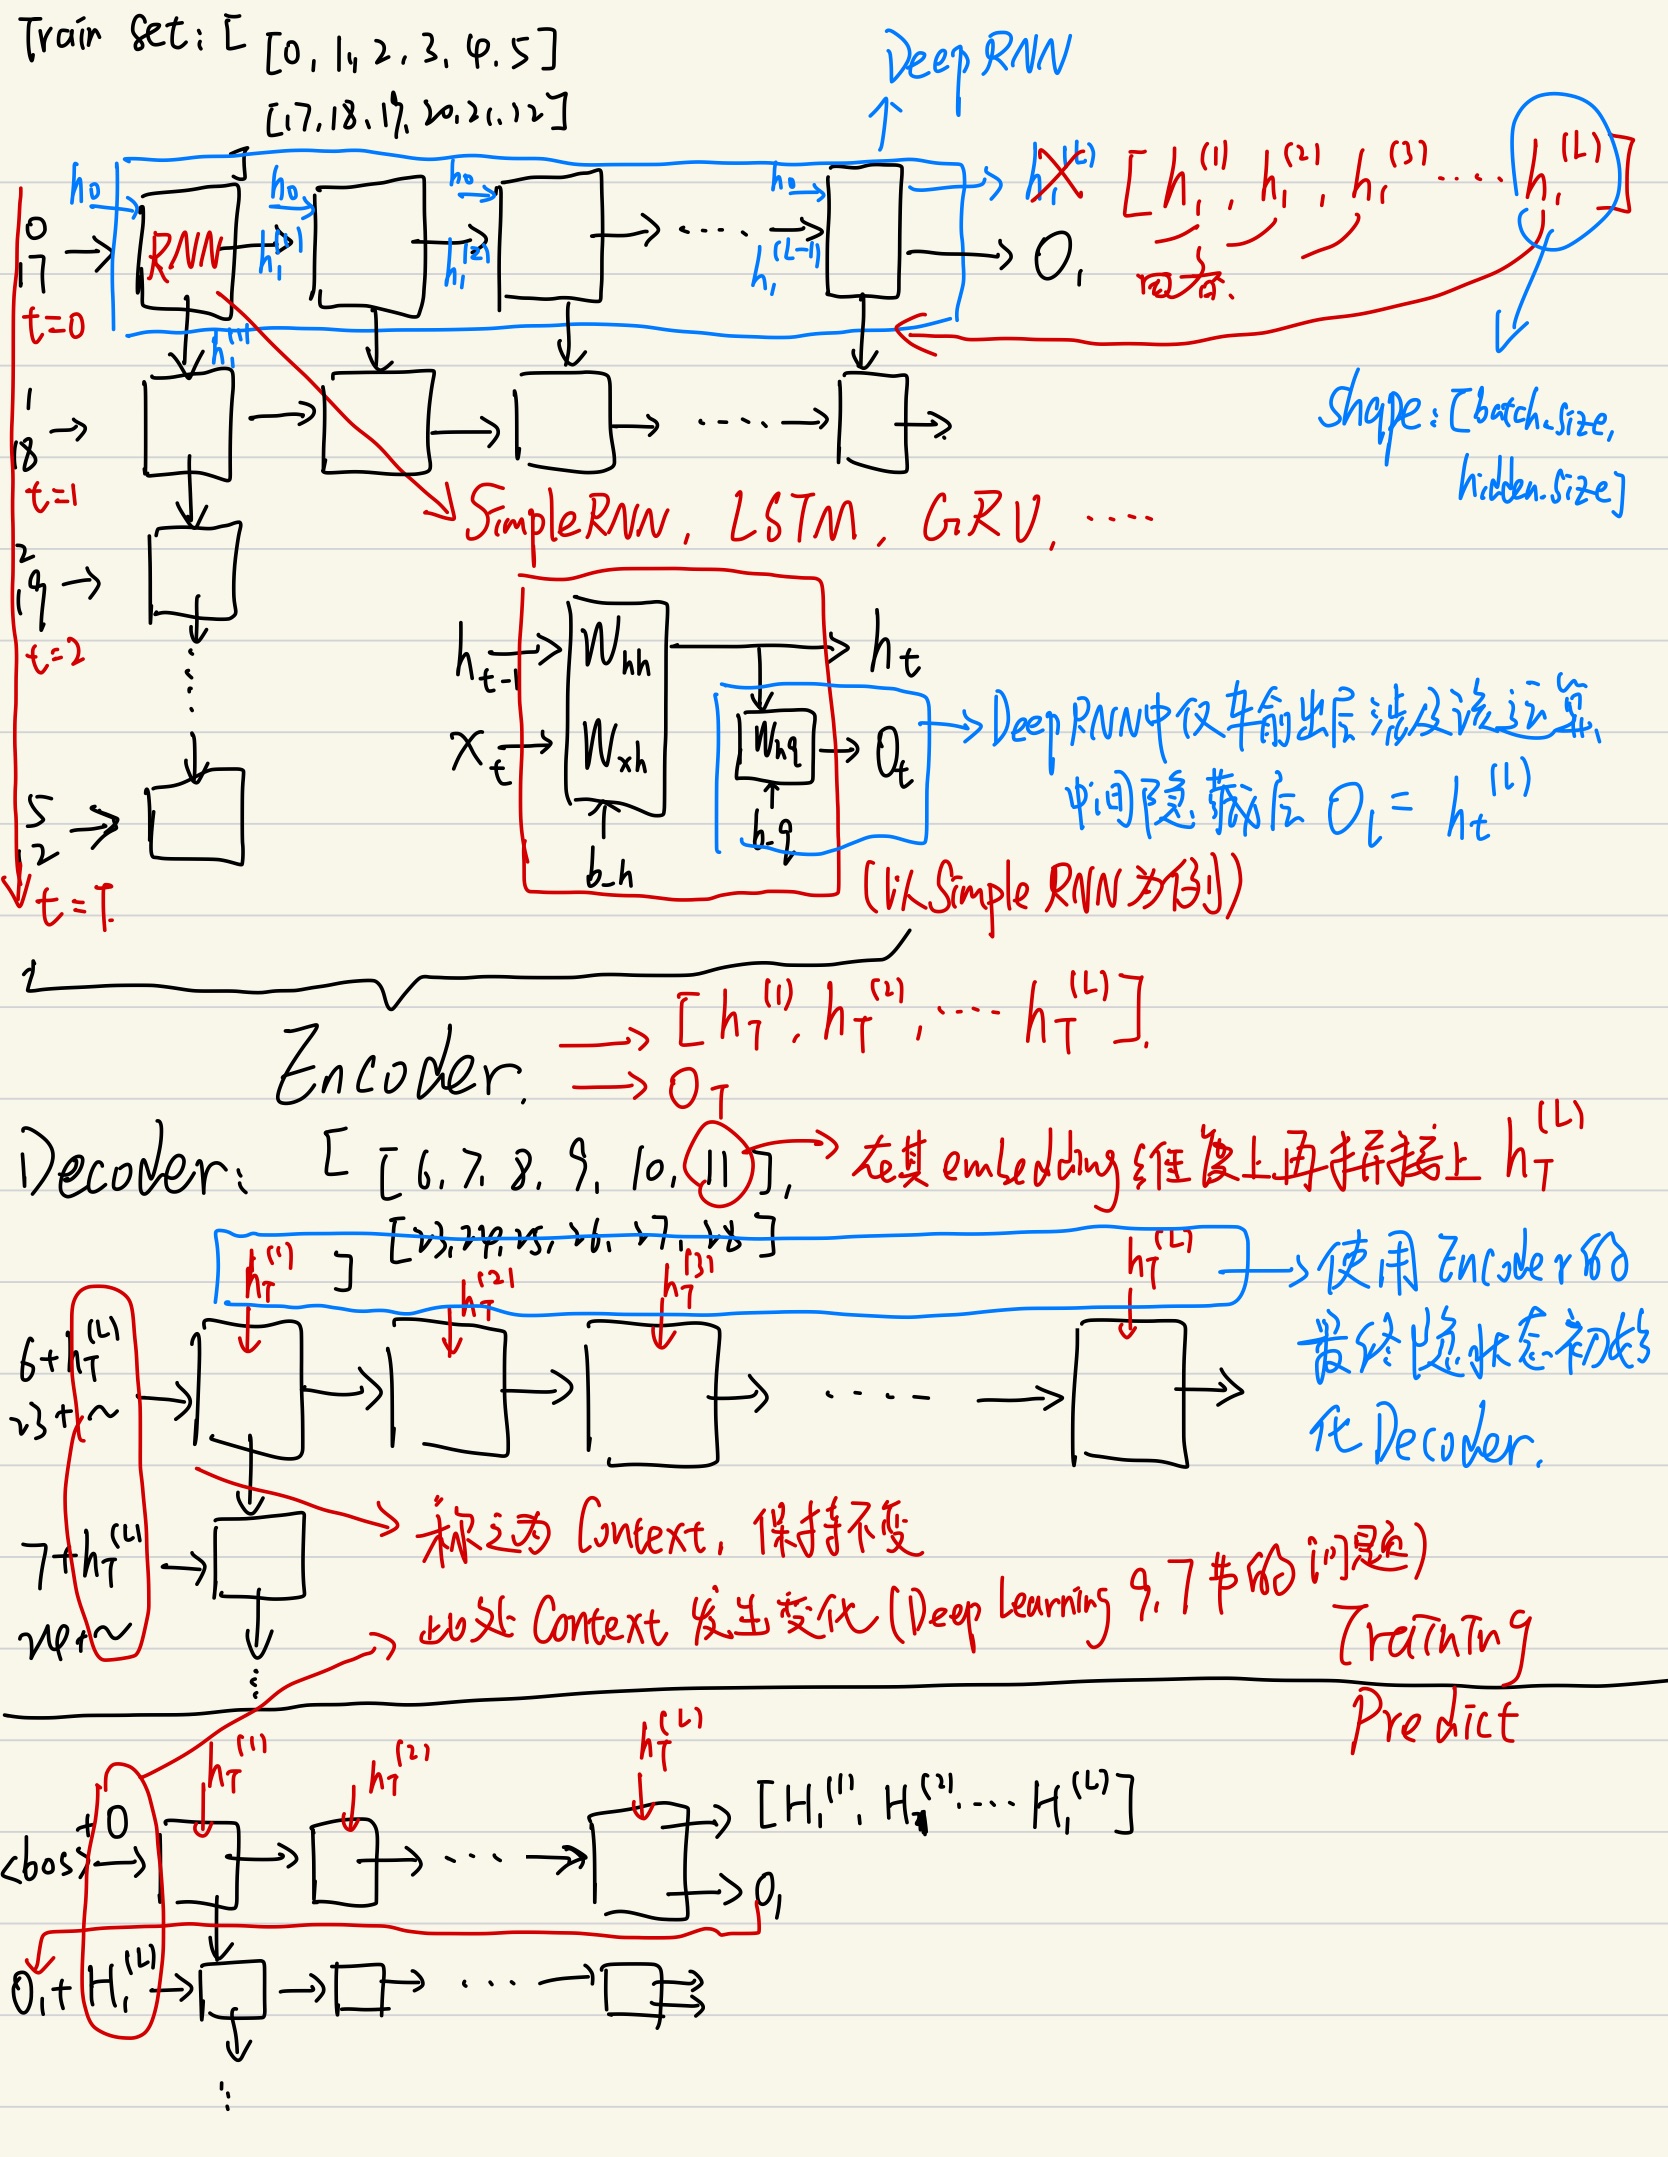 Train Set: [ [0, 1, 2, 3, 4, 5]
[17, 18, 19, 20, 21, 22]
]
DeepRNN
h0 h0 h0 h0
0
17
t=0
RNN
h1^(1) h1^(2) h1^(L-1)
h1^(1)
[h1^(1), h1^(2), h1^(3) ····· h1^(L)]
O1
shape: [batch_size,
hidden_size]
1
18
t=1
SimpleRNN, LSTM, GRU, ····
2
19
t=2
h_{t-1} W_hh h_t
x_t W_xh W_hq O_t
b_h b_q
DeepRNN中仅在输出层涉及该运算,
中间隐藏层 O_t = h_t^(L)
(以SimpleRNN为例)
5
22
t=T.
Encoder.
[h_T^(1), h_T^(2), ···· h_T^(L)].
O_T
Decoder: [ [6, 7, 8, 9, 10, 11],
在其embedding维度上再拼接上 h_T^(L)
[23, 24, 25, 26, 27, 28]
]
h_T^(1) h_T^(2) h_T^(3) h_T^(L)
使用Encoder的
最终隐状态初始
化Decoder.
6+h_T^(L)
23+~
称之为Context, 保持不变
7+h_T^(L)
24+~
此处Context发生变化(Deep Learning 9.7节的问题)
Training
Predict
h_T^(1) h_T^(2) h_T^(L)
[H1^(1), H1^(2) ···· H1^(L)]
+0
<bos>
O1
O1 + H1^(L)